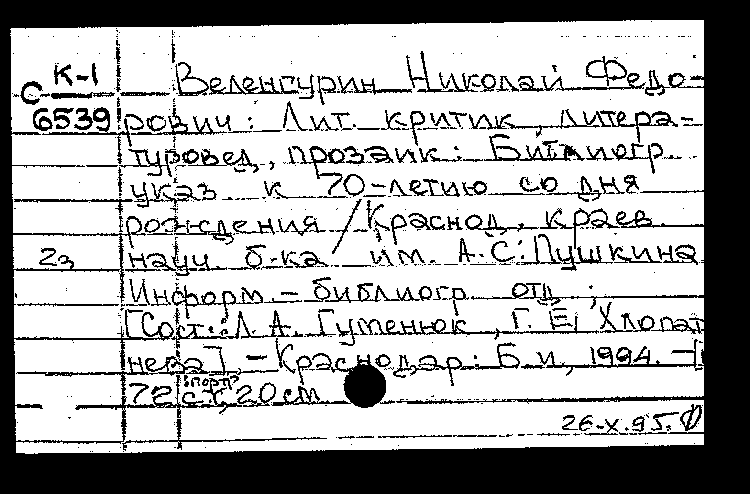 К-1 Веленгурин Николай Федо-
С
6539 рович: Лит. критик, литера-
туровед, прозаик: Библиогр.
указ. к 70-летию со дня
рождения / Краснод. краев.
2э науч. б-ка им. А.С. Пушкина
Информ.-библиогр. отд.;
[Сост.: Л. А. Гутенюк, Г. Е. Хлопат
нева]. - Краснодар: Б.и, 1994. -
72 с., портр 20 см
26-X.95.